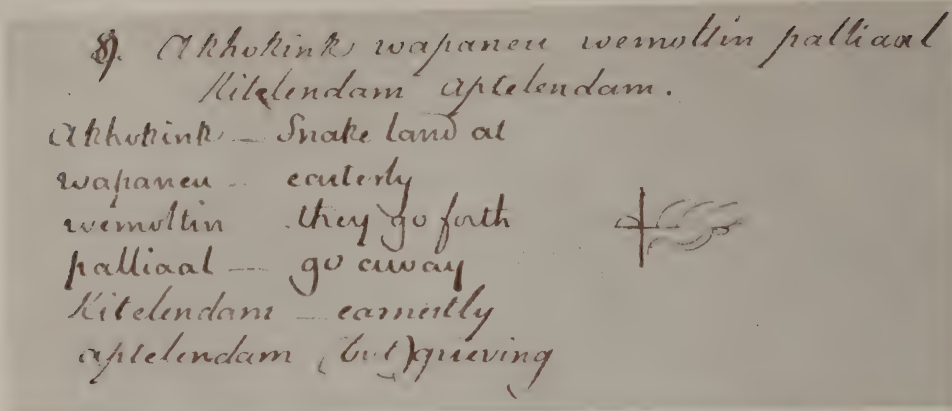 8). Akhokink wapaneu wemoltin palliaal
Kitelendam aptelendam.
Akhokink — Snake land at
wapaneu — easterly
wemoltin they go forth
palliaal — go away
Kitelendam — earnestly
aptelendam (but) grieving